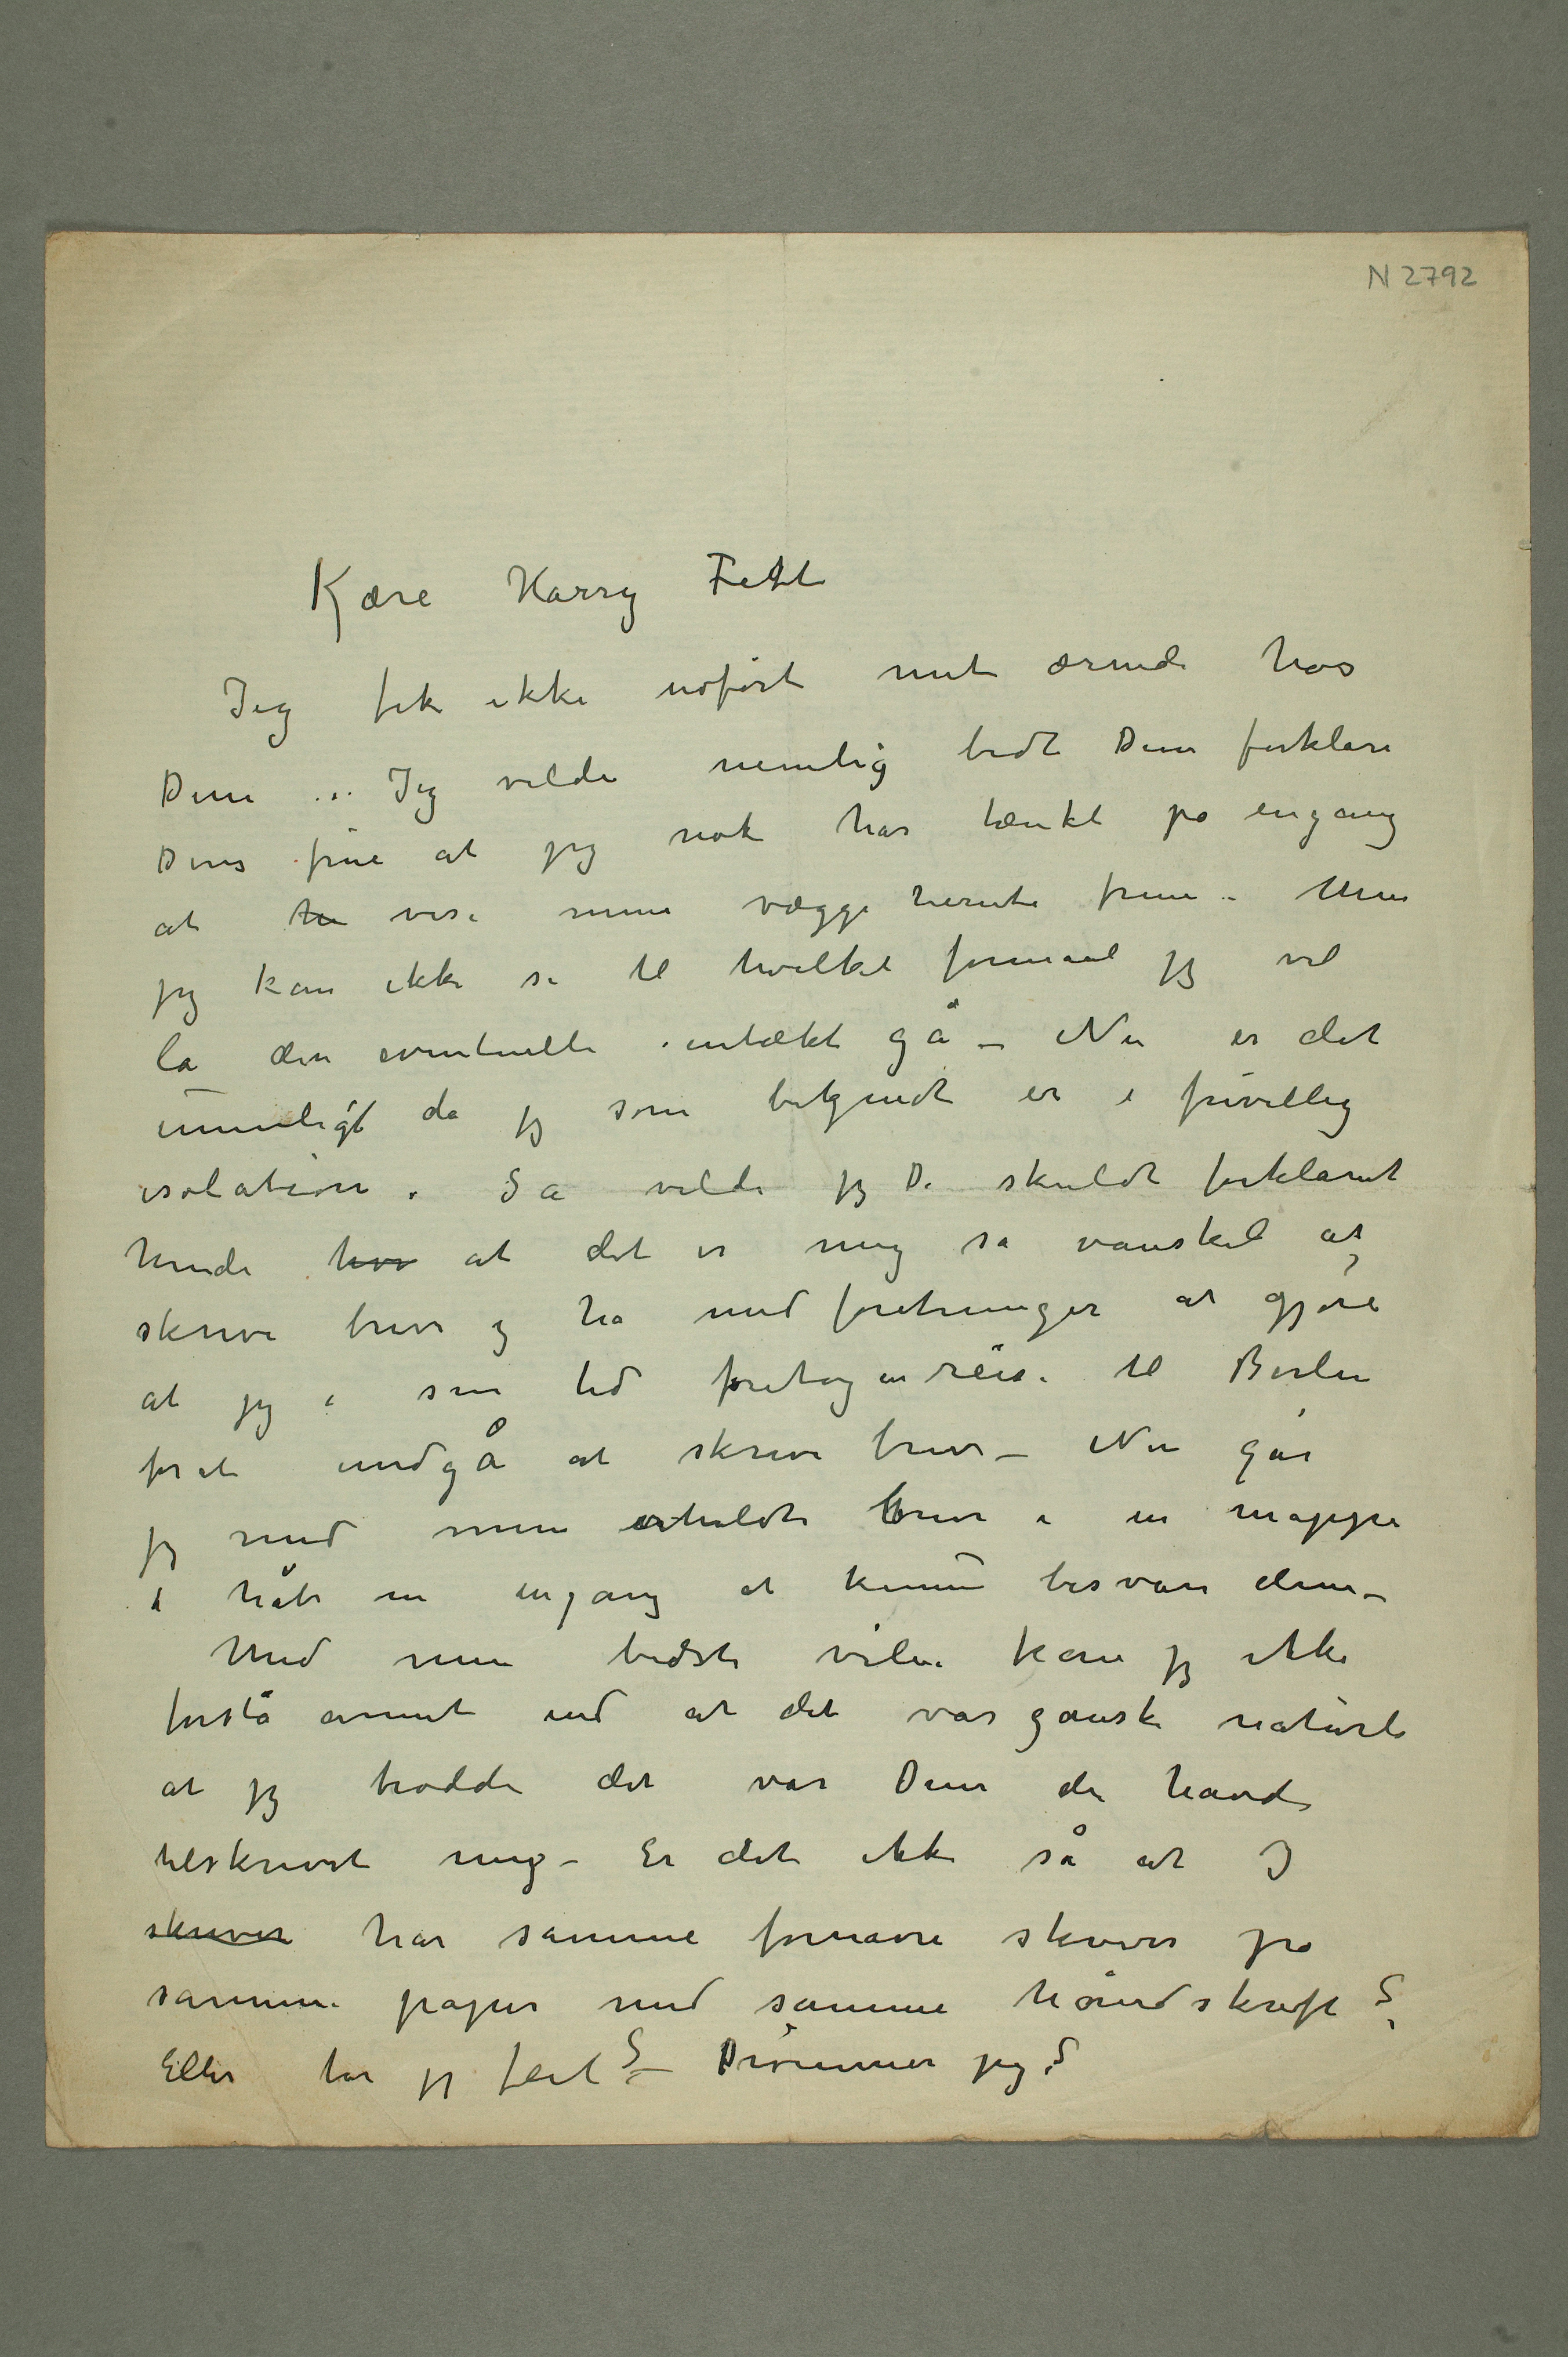 N 2792
Kære Harry Fett
Jeg fik ikke udført mit ærinde hos
Dem .. Jeg vilde nemlig bedt Dem forklare
Deres frue at jeg nok har tænkt på engang
at vise mine vægge herute frem – Men
jeg kan ikke se til hvilket formaal jeg vil
la den eventuelle intækt gå – Nu er det
umuligt da jeg som bekjendt er i frivillig
isolation. Så vilde jeg De skuldt forklaret
hende hvor at det er mig så vanskel at
skrive breve og ha med foretninger at gjøre
at jeg i sin tid foretog en reise til Berlin
forat undgå at skrive breve – Nu går
jeg med mine erholdte breve i en mappe
i håb om engang at kunne besvare dem –
Med min bedste vilie kan jeg ikke
forstå annet end at det var ganske naturlt
at jeg trodde det var Dem der havde
tilskrevet mig – Er det ikke så at I
skriver har samme fornavne skriver på
samme papir med samme håndskrift ?
Eller tar jeg feil ? – Drømmer jeg ?